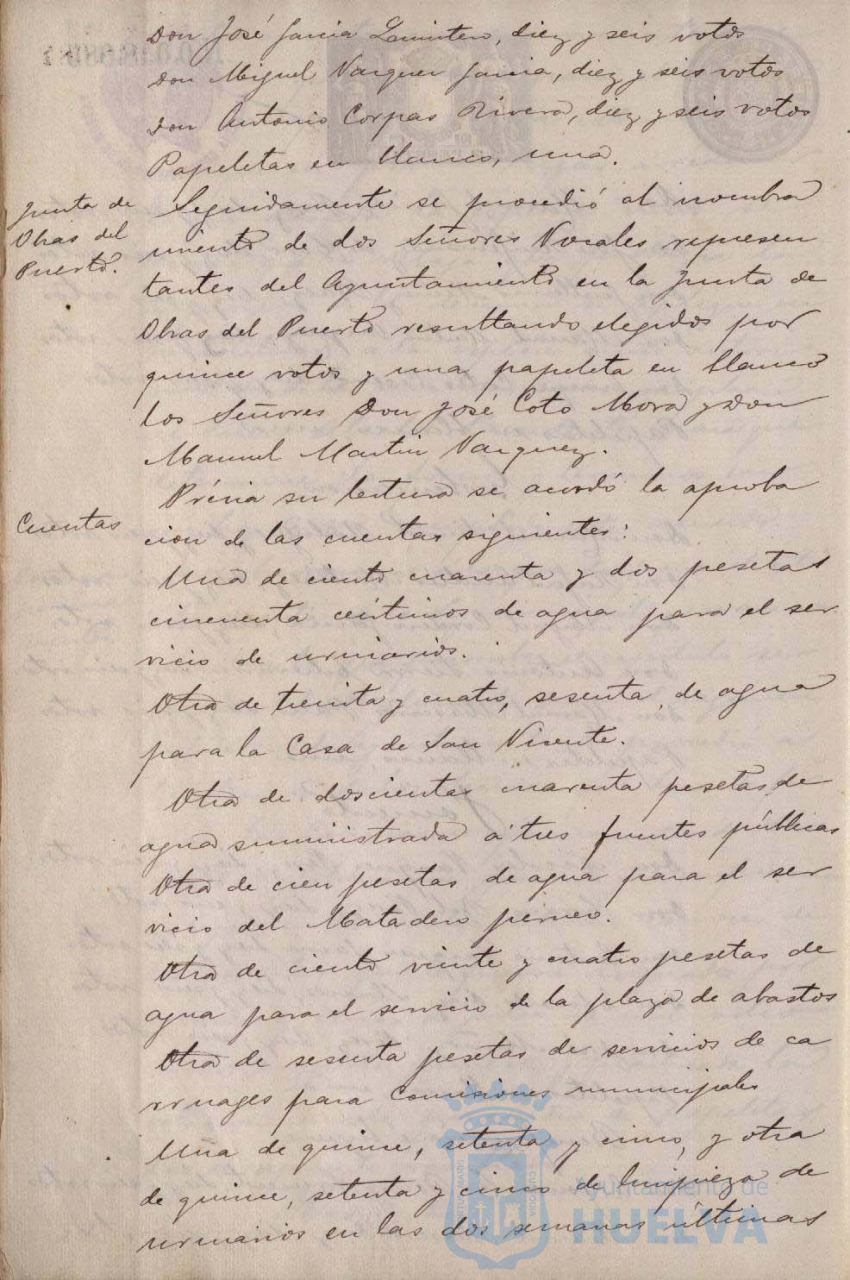 Don José Garcia                 , diez y seis votos
Don Miguel Vazquez Garcia, diez y seis votos
Don Antonio Corpas Rivera, diez y seis votos
Papeletas en blanco, una.
Junta de
Obras del
Puerto.
Seguidamente se procedió al nombra
miento de dos Señores Vocales represen
tantes del Ayuntamiento en la Junta de
Obras del Puerto resultando elegidos por
quince votos y una papeleta en blanco
los Señores Don José Coto Mora y Don
Manuel Martin Vazquez.
Cuentas
Prévia su lectura se acordó la aproba
cion de las cuentas siguientes:
Una de ciento cuarenta y dos pesetas
cincuenta céntimos de agua para el ser
vicio de urinarios.
Otra de treinta y cuatro, sesenta, de agua
para la Casa de San Vicente.
Otra de doscientas cuarenta pesetas de
agua suministrada á tres fuentes públicas
Otra de cien pesetas de agua para el ser
vicio del Matadero
Otra de ciento veinte y cuatro pesetas de
agua para el servicio de la plaza de abastos
Otra de sesenta pesetas de servicios de ca
rruages para Comisiones municipales
Una de quince, setenta y cinco, y otra
de quince, setenta y cinco de limpieza de
urinarios en las dos semanas últimas
Ayuntamiento de
HUELVA